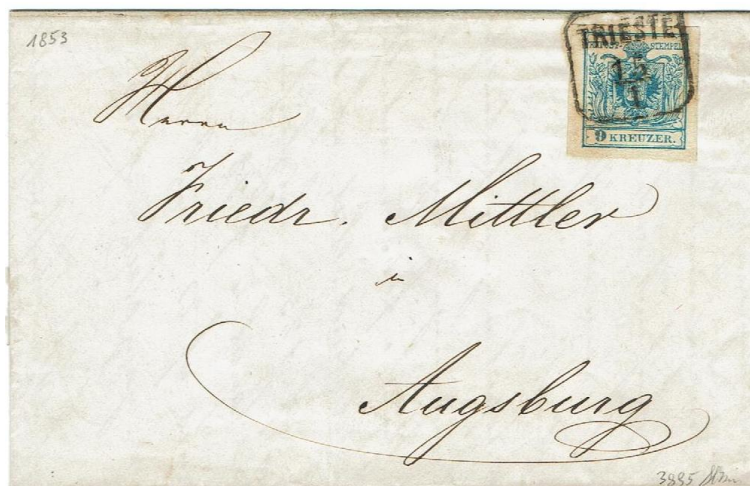 1853
TRIESTE
15
1
STEMPEL
9 KREUZER.
Herrn
Friedr. Mittler
in
Augsburg
3885